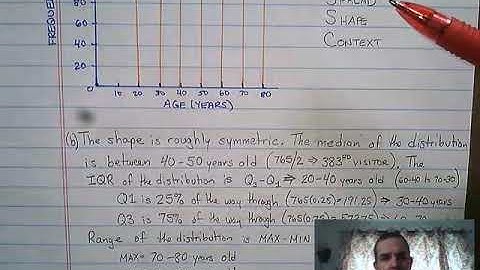 FREQUEN
80
60
40
20
0
10 20 30 40 50 60 70 80
AGE (YEARS)
SPREAD
SHAPE
CONTEXT
(b) The shape is roughly symmetric. The median of the distribution
is between 40-50 years old (765/2 ⇒ 383RD VISITOR). The
IQR of the distribution is Q3-Q1 ⇒ 20-40 years old (60-40 to 70-30)
Q1 is 25% of the way through (765(0.25)=191.25) ⇒ 30-40 years
Q3 is 75% of the way through
Range of the distribution is MAX-MIN
MAX= 70-80 years old